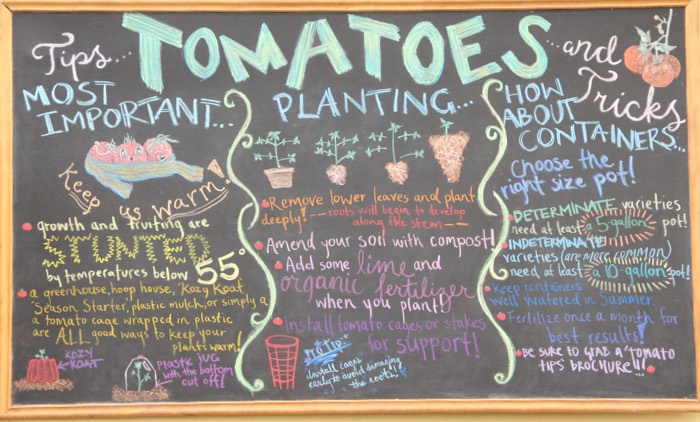 Tips... TOMATOES ...and Tricks
MOST
IMPORTANT...
Keep us warm!
growth and fruiting are
STUNTED
by temperatures below 55°
a greenhouse, hoop house, Kozy Koat
Season Starter, plastic mulch, or simply a
a tomato cage wrapped in plastic
are ALL good ways to keep your
plants warm!
KOZY
KOAT
plastic JUG
with the bottom
cut off!
PLANTING...
Remove lower leaves and plant
deeply! --- roots will begin to develop
along the stem ---
Amend your soil with compost!
Add some lime and
organic fertilizer
when you plant!
Install tomato cages or stakes
for support!
PRO TIP:
Install cages
early to avoid damaging
the roots!
HOW
ABOUT
CONTAINERS...
Choose the
right size pot!
DETERMINATE varieties
need at least a 5-gallon pot!
INDETERMINATE
varieties (are more common)
need at least a 10-gallon pot!
Keep containers
well watered in Summer
Fertilize once a month for
best results!
BE SURE TO GRAB a "tomato
TIPS BROCHURE"!!